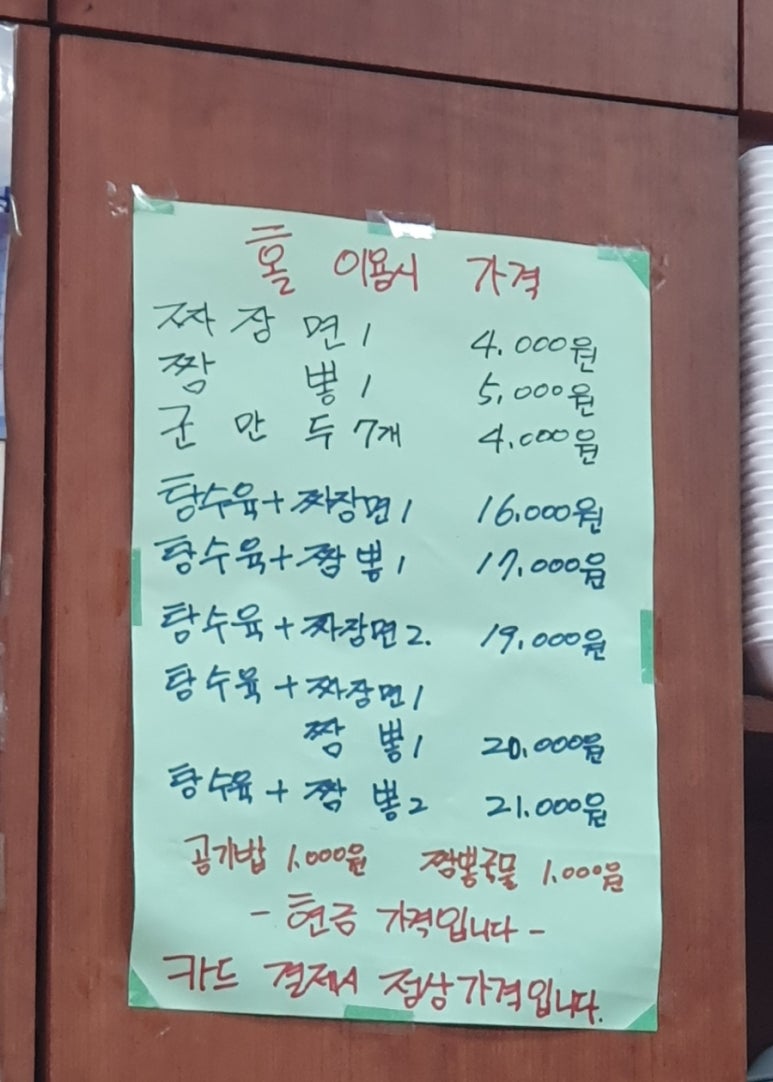 홀 이용시 가격
짜장면 1 4.000원
짬뽕 1 5.000원
군만두 7개 4.000원
탕수육+짜장면 1 16.000원
탕수육+짬뽕 1 17.000원
탕수육+짜장면 2. 19.000원
탕수육+짜장면 1
짬뽕 1 20.000원
탕수육+짬뽕 2 21.000원
공기밥 1.000원 짬뽕국물 1.000원
- 현금 가격입니다 -
카드 결제시 정상가격입니다.